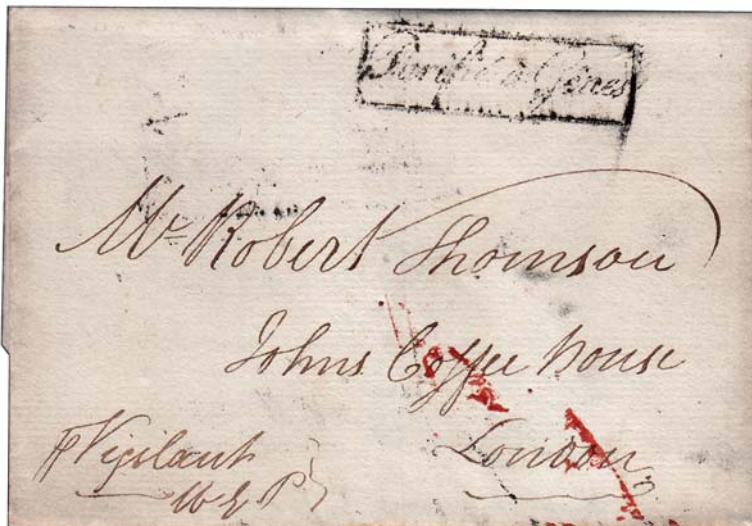 Purifié à Gênes
Mr Robert Thomson
Johns Coffee house
London
p Vigilant